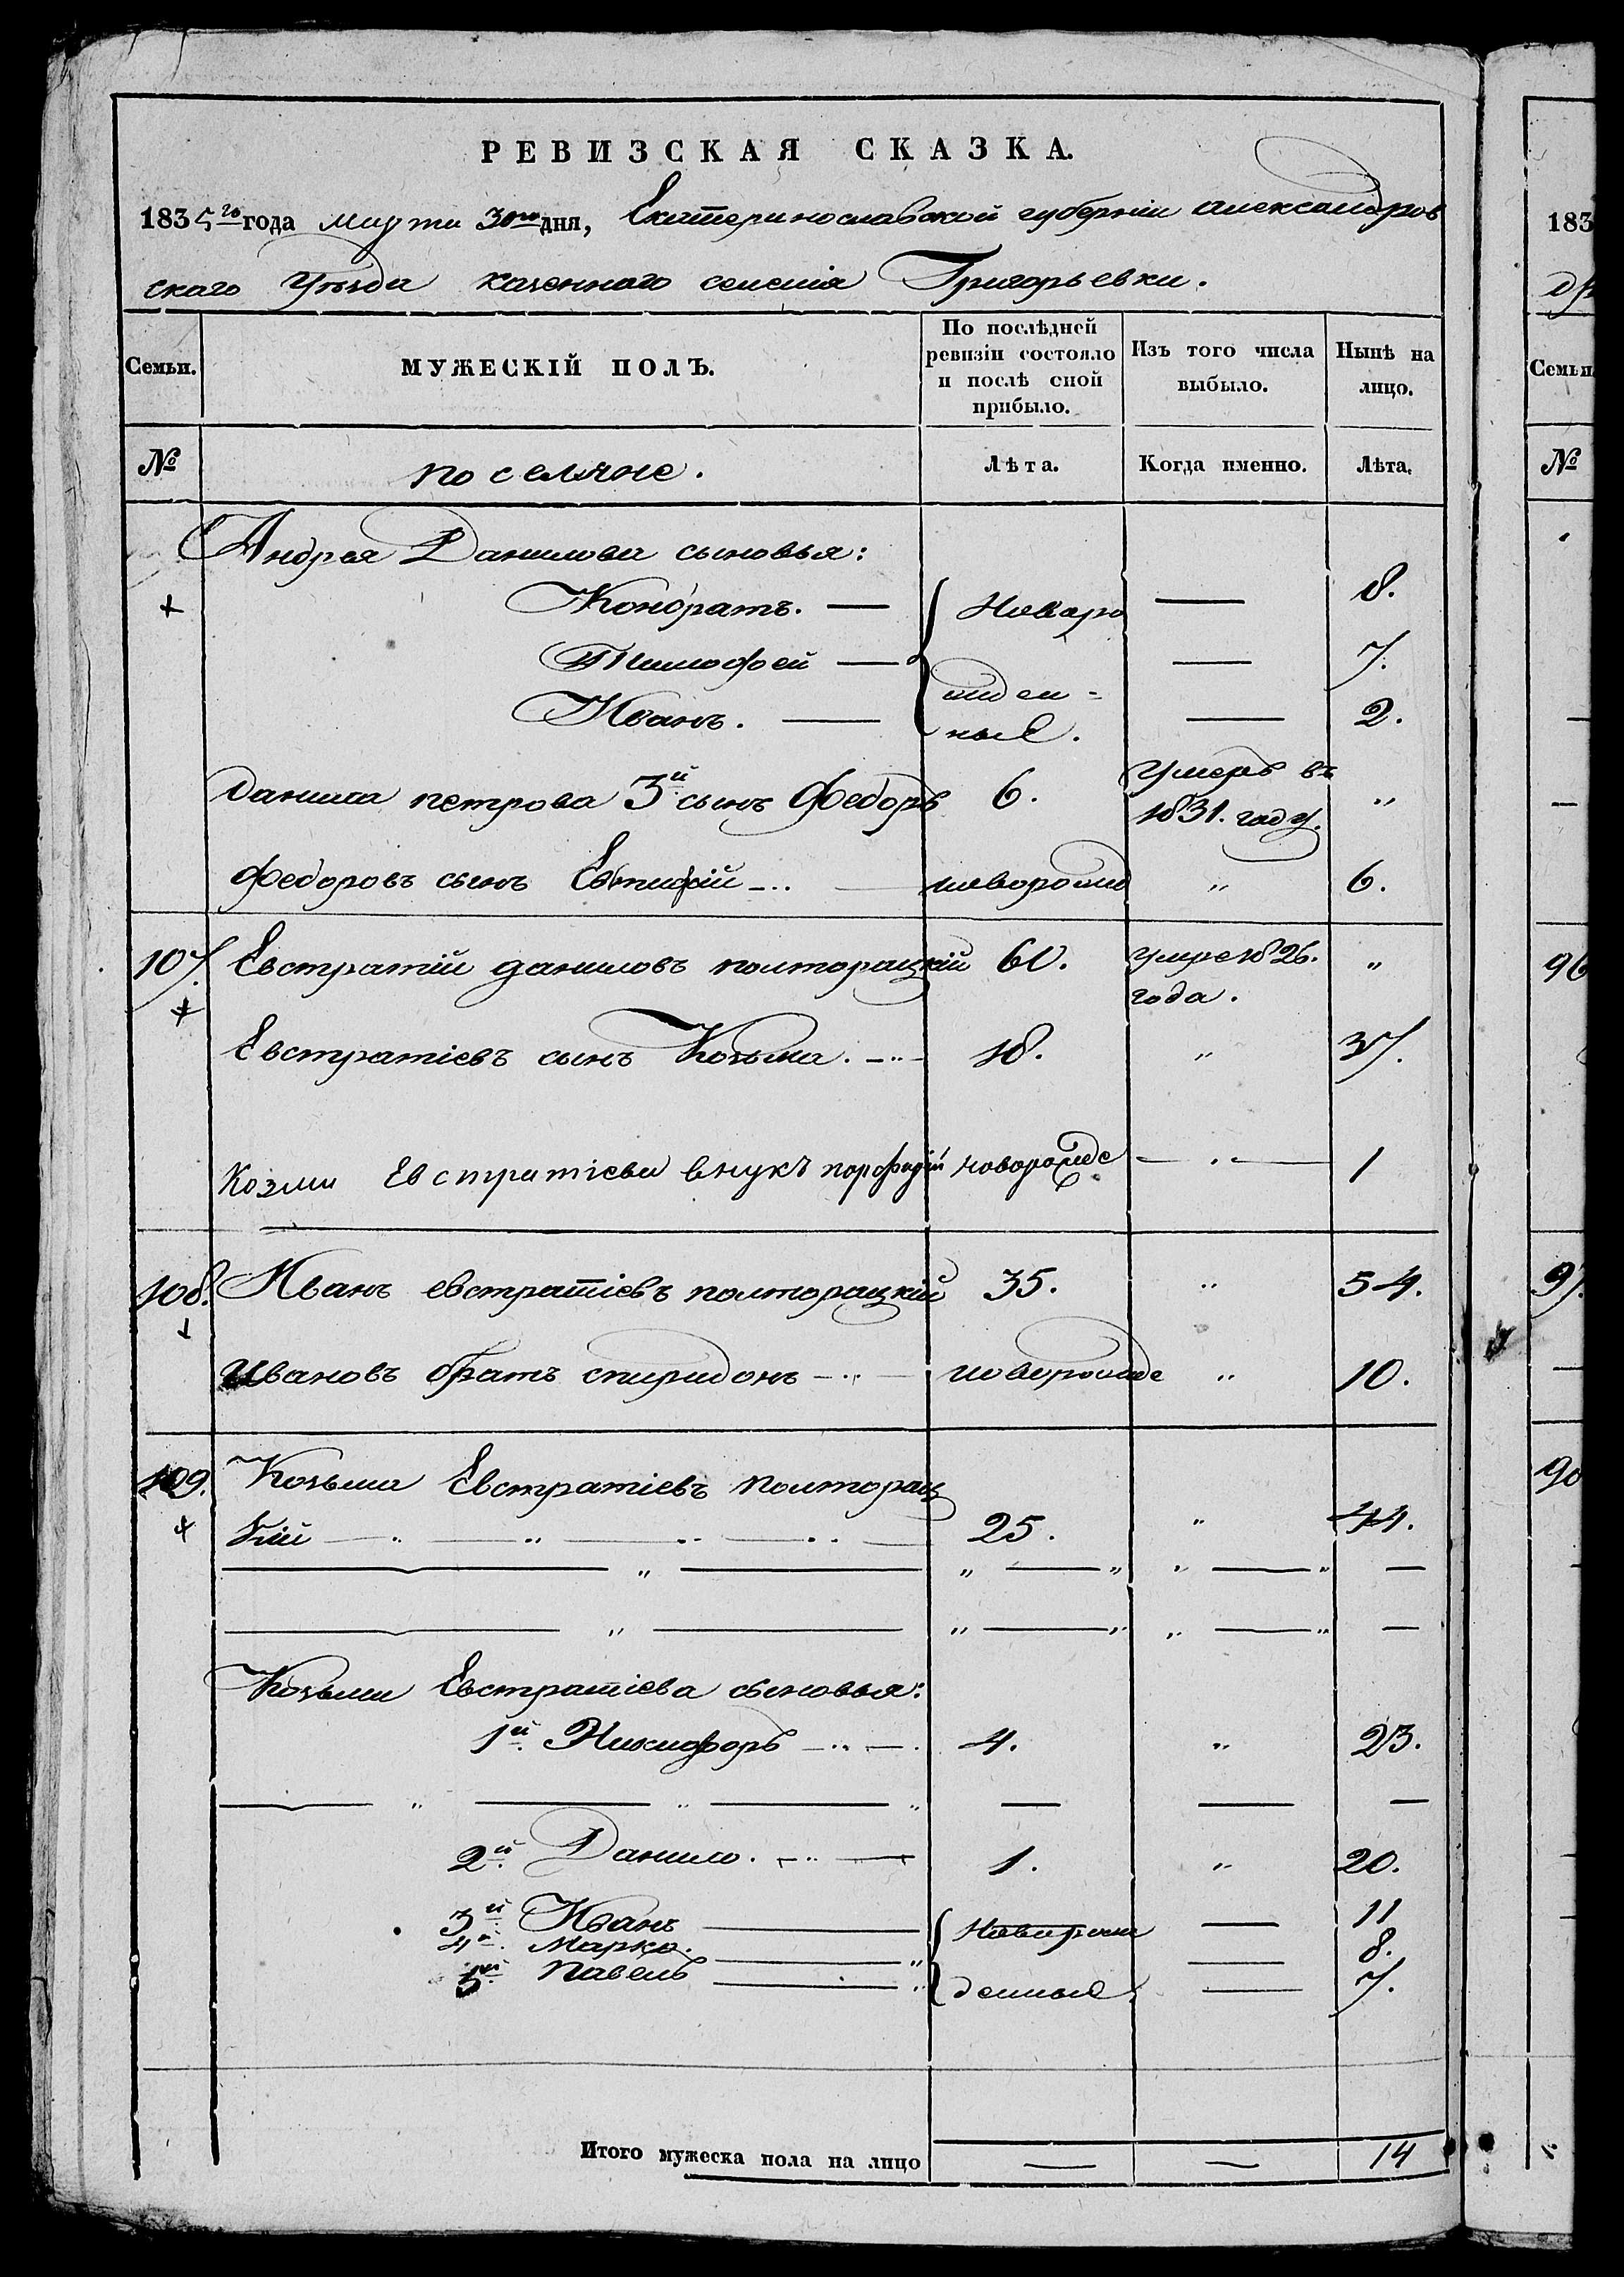 РЕВИЗСКАЯ СКАЗКА.
1835го года марта 30го дня, Екатеринославской губерніи александров
скаго уѣзда казеннаго селенія Григорьевки.
Семьи. МУЖЕСКІЙ ПОЛЪ. По послѣдней ревизіи состояло и послѣ оной прибыло. Изъ того числа выбыло. Нынѣ на лицо.
№ поселяне. Лѣта. Когда именно. Лѣта.
Андрея Данилова сыновья:
+ Кондратъ. — Новоро — 8.
Тимофей — жден= — 7.
Иванъ. — ные. — 2.
Данила петрова 3й сынъ Федоръ 6. Умеръ въ 1831. году. „
Федоровъ сынъ Евтифій — новорожд „ 6.
107. Евстратій даниловъ полторацкій 60. умре 1826. года. „
+
Евстратіевъ сынъ Козьма. — 18. „ 37.
Козми Евстратіева внукъ порфирій новорожде — 1
108. Иванъ евстратіевъ полторацкій 35. „ 54.
Ивановъ братъ спиридонъ — новорожде „ 10.
109. Козьма Евстратіевъ полторац
+ кій — 25. „ 44.
Козьми Евстратіева сыновья:
1й. Никифоръ — 4. „ 23.
2й. Данило. — 1. „ 20.
3й. Иванъ — Новорож — 11
4й. Марко. — 8.
5й. Павелъ — денные. — 7.
Итого мужеска пола на лицо — — 14
183
Семьи.
№
96
97.